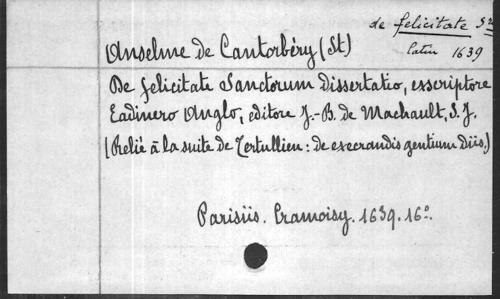 de felicitate Sm
latin 1639
Anselme de Cantorbéry (St)
De felicitate Sanctorum dissertatio, exscriptore
Eadinero Anglo, editore J.-B. de Machault, S. J.
(Relié à la suite de Tertullien: de execrandis gentium Diis.)
Parisiis. Cramoisy. 1639. 16º.